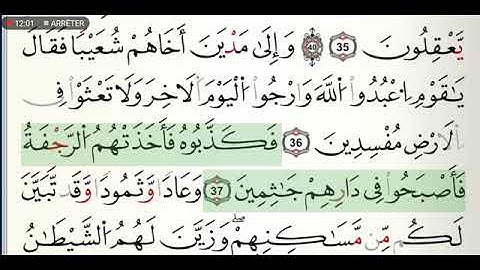 12:01 ARRÊTER
يَّعْقِلُونَ 35 40 وَإِلَىٰ مَدْيَنَ أَخَاهُمْ شُعَيْبًا فَقَالَ
يَٰقَوْمِ اِ۟عْبُدُوا۟ اُ۟للَّهَ وَارْجُوا۟ اُ۟لْيَوْمَ اَ۟لَاخِرَ وَلَا تَعْثَوْا۟ فِے
اِ۟لَارْضِ مُفْسِدِينَ 36 فَكَذَّبُوهُ فَأَخَذَتْهُمُ اُ۟لرَّجْفَةُ
فَأَصْبَحُوا۟ فِى دَارِهِمْ جَٰثِمِينَ 37 وَعَادًا وَّثَمُودًا وَقَد تَّبَيَّنَ
لَكُم مِّن مَّسَٰكِنِهِمْۖ وَزَيَّنَ لَهُمُ اُ۟لشَّيْطَٰنُ